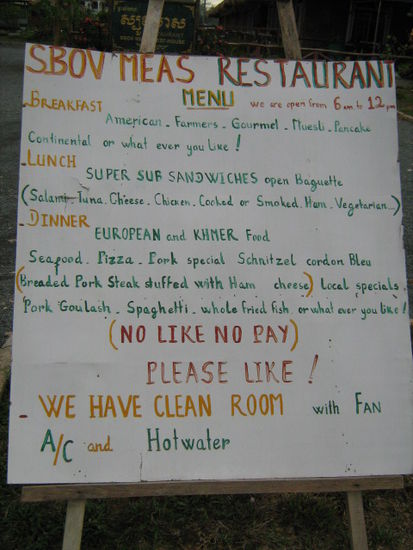 ស្បូវមាស
SBOV MEAS RESTAURANT
MENU we are open from 6 am to 12 pm
- BREAKFAST
American - Farmers - Gourmet - Muesli - Pancake
Continental or what ever you like !
- LUNCH
SUPER SUB SANDWICHES open Baguette
(Salami - Tuna - Cheese - Chicken - Cooked or Smoked - Ham - Vegetarian...)
- DINNER
EUROPEAN and KHMER Food
Seafood - Pizza - Pork special Schnitzel cordon Bleu
(Breaded Pork Steak stuffed with Ham cheese) Local specials -
Pork Goulash - Spaghetti - whole fried fish or what ever you like !
(NO LIKE NO PAY)
PLEASE LIKE !
- WE HAVE CLEAN ROOM with FAN
A/C and Hotwater